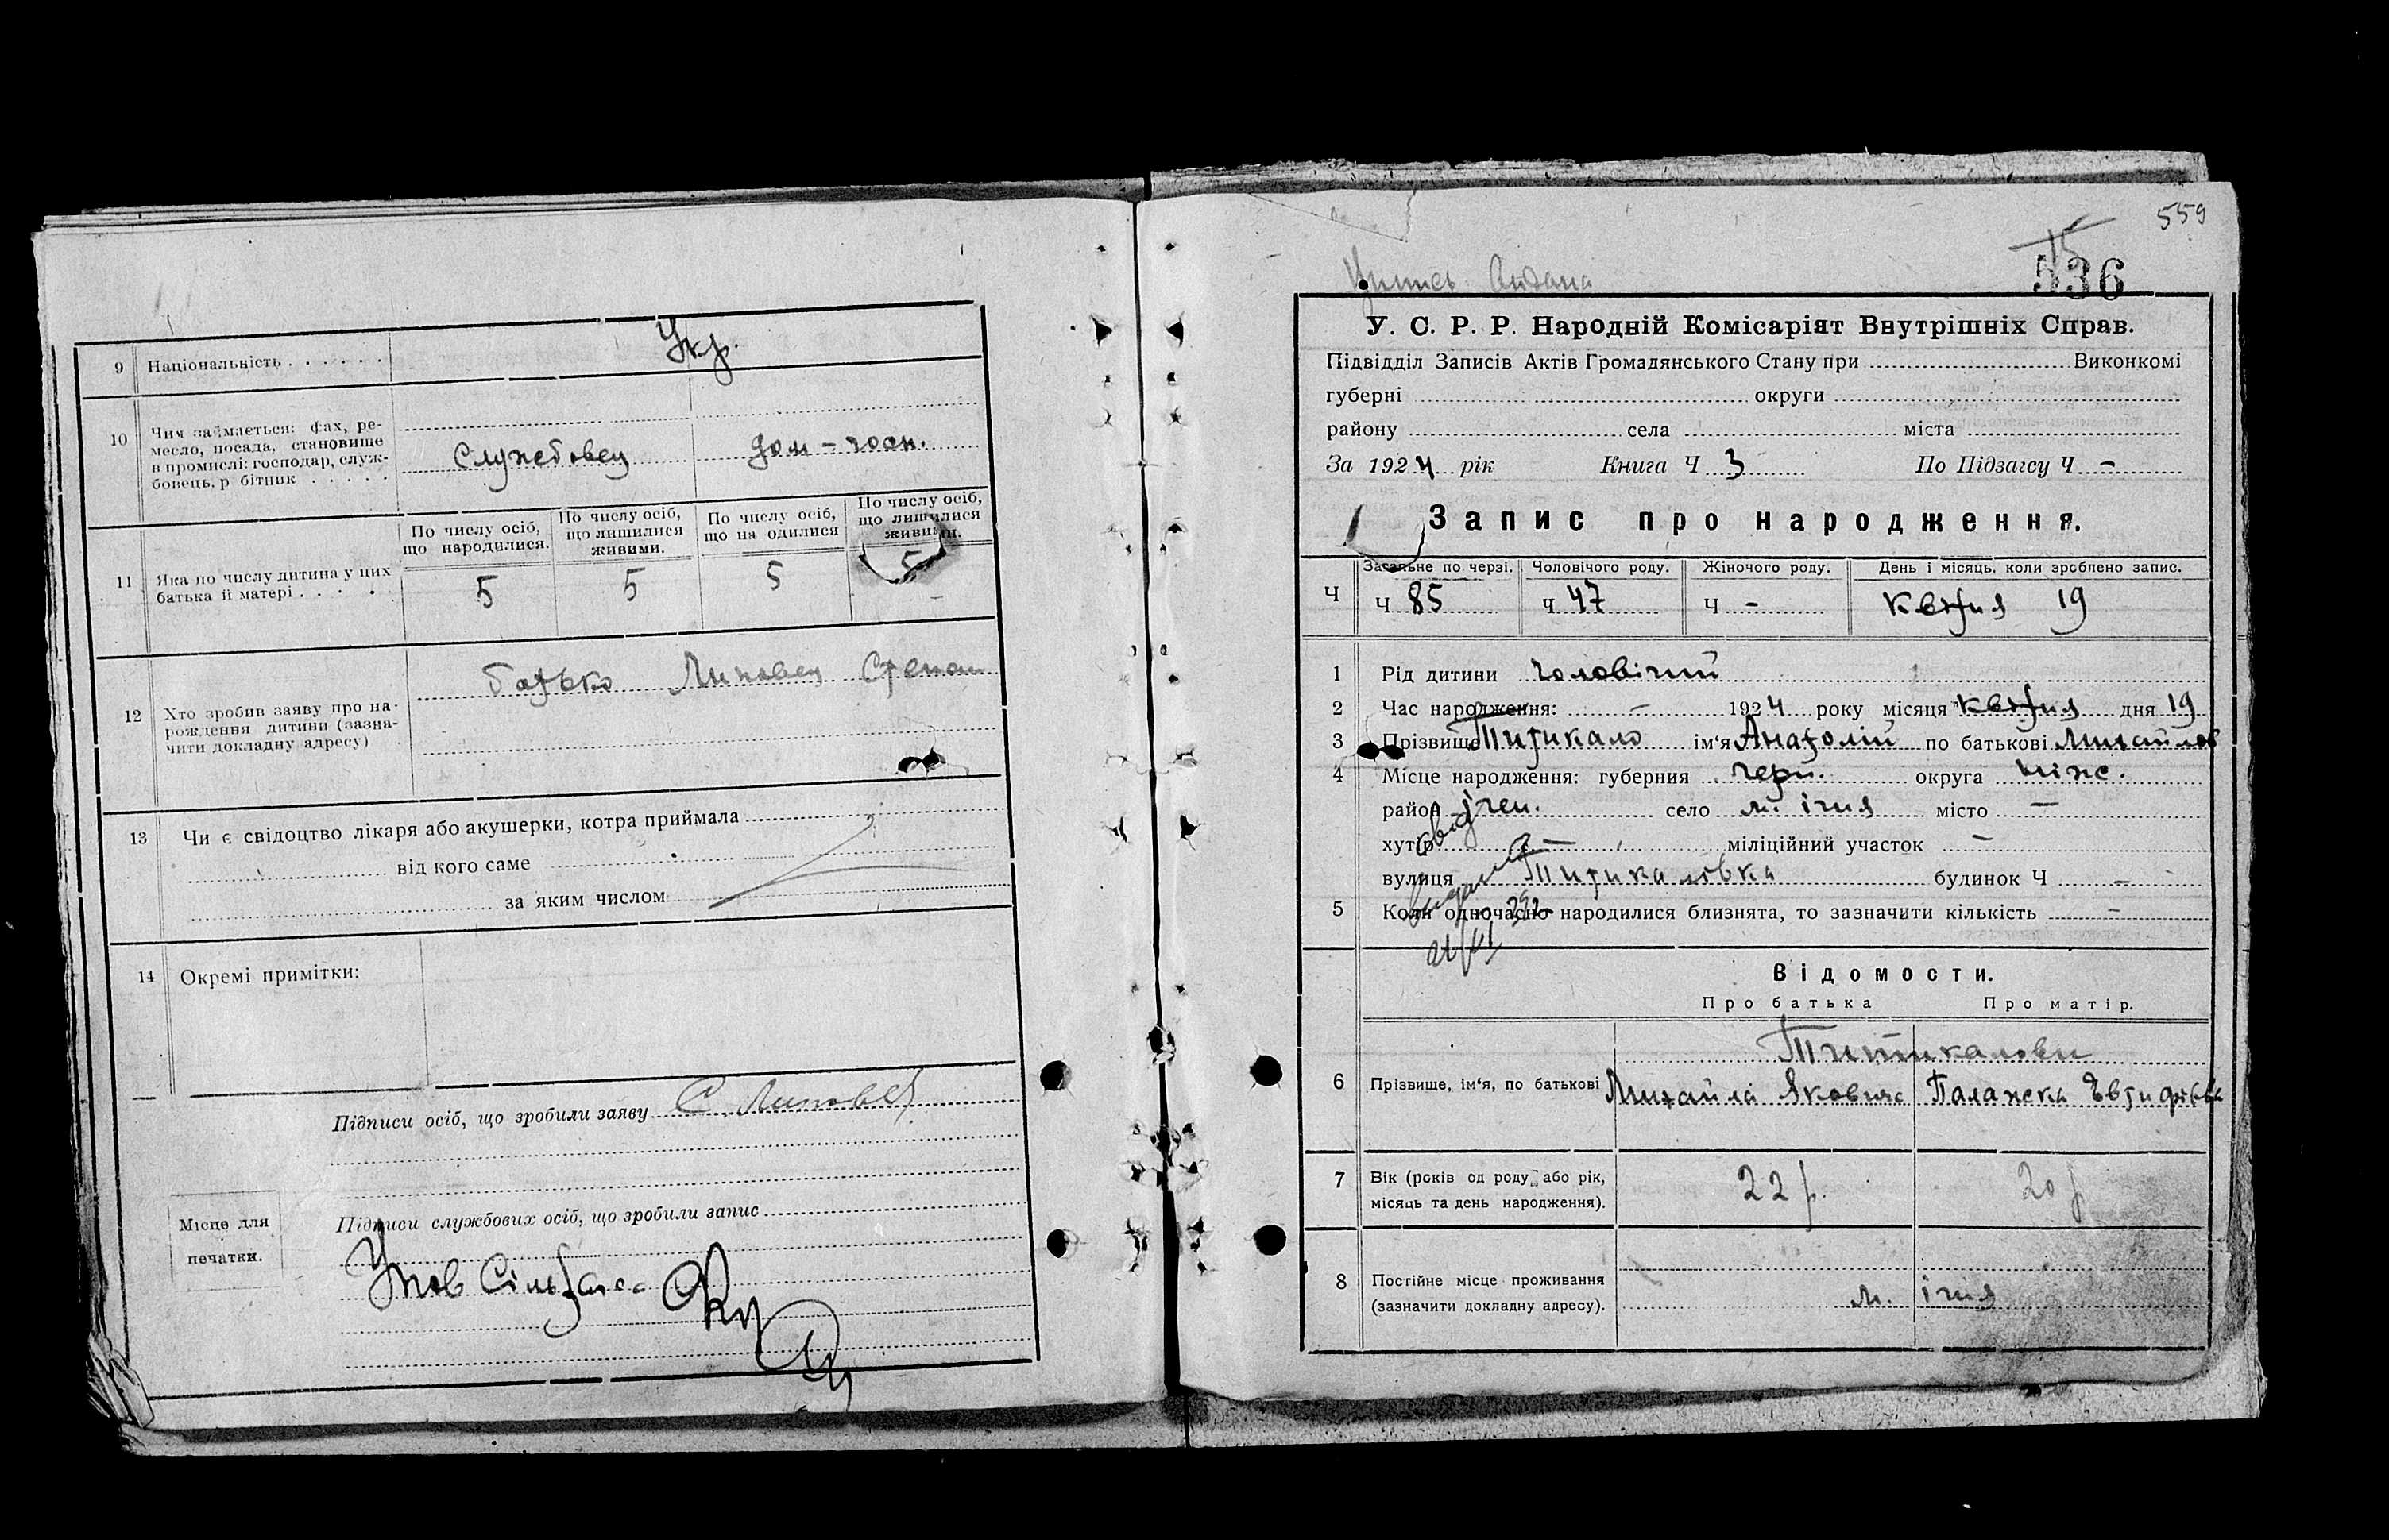 9 Національність . . . . . . Укр.
10 Чим займається: фах, ре-
месло, посада, становище
в промислі: господар, служ-
бовець, р бітник . . . . .
Службовец дом – госп.
11 Яка по числу дитина у цих
батька іі матері . . . .
По числу осіб,
що народилися.
По числу осіб,
що лишилися
живими.
По числу осіб,
що на одилися
По числу осіб,
що лишилися
живими.
5 5 5 5
12 Хто зробив заяву про на-
рождення дитини (зазна-
чити докладну адресу)
батько Липовец Степан
13 Чи є свідоцтво лікаря або акушерки, котра приймала
від кого саме
за яким числом
14 Окремі примітки:
Підписи осіб, що зробили заяву С. Липовец
Підписи службових осіб, що зробили запис
Місце для
печатки.
559
536
У. С. Р. Р. Народній Комісаріят Внутрішніх Справ.
Підвідділ Записів Актів Громадянського Стану при Виконкомі
губерні округи
району села міста
За 1924 рік Книга Ч 3 По Підзагсу Ч –
Запис про народження.
Загальне по черзі. Чоловічого роду. Жіночого роду. День і місяць, коли зроблено запис.
Ч Ч 85 Ч 47 Ч – Квітня 19
1 Рід дитини чоловічий
2 Час народження: – 1924 року місяця квітня дня 19
3 Прізвище Титикало ім'я Анатолій по батькові Михайлов
4 Місце народження: губерния черн. округа ніж.
район ічен. село м. ічня місто –
хутір – міліційний участок –
вулиця Титикаловка будинок Ч –
5 Коли одночасно народилися близнята, то зазначити кількість –
Відомости.
Про батька Про матір.
Титикалови
6 Прізвище, ім'я, по батькові Михайла Яковича Палажка Євтифівна
7 Вік (років од роду або рік,
місяць та день народження).
22 р. 20 р
8 Постійне місце проживання
(зазначити докладну адресу).
м. ічня